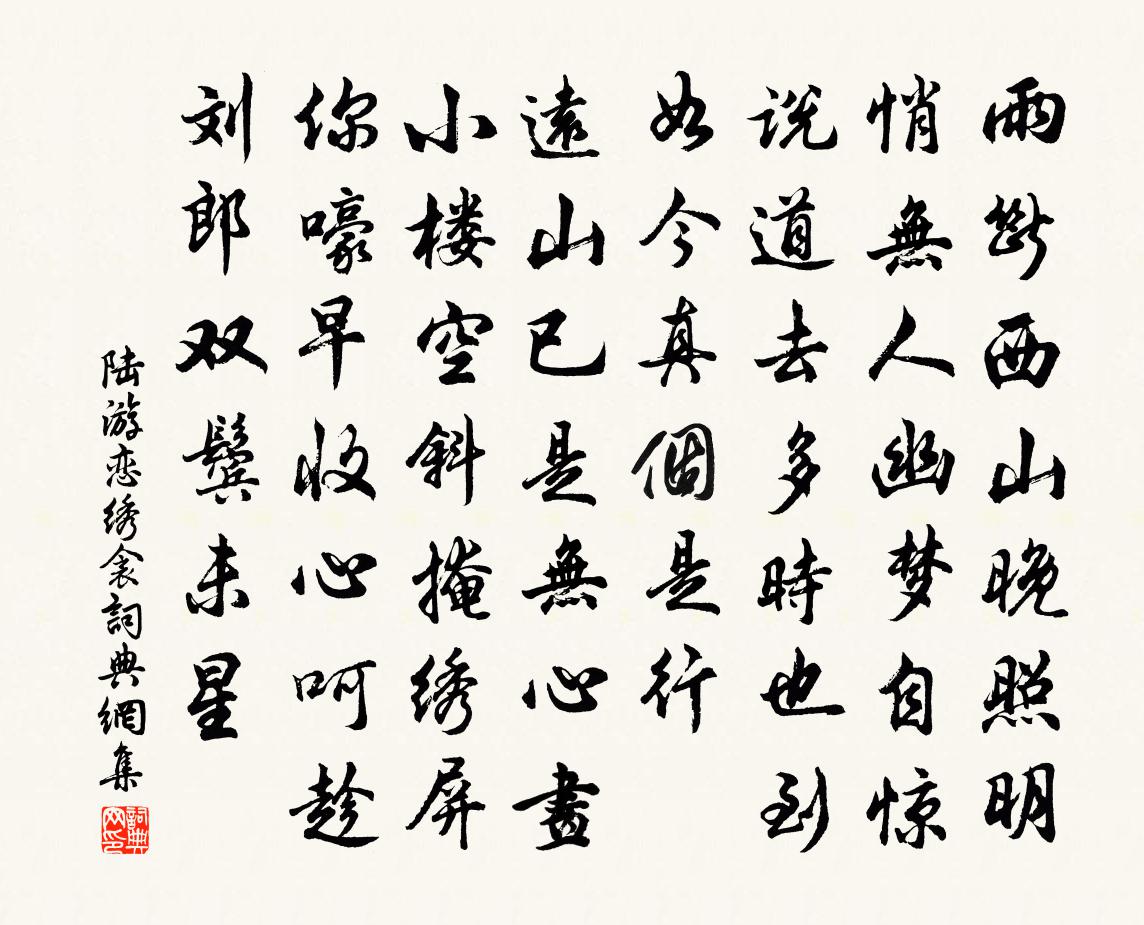 雨斷西山晚照明
悄無人幽梦自惊
说道去多時也到
如今真個是行
遠山已是無心畫
小楼空斜掩绣屏
你嚎早收心呵趁
刘郎双鬓未星
陆游恋绣衾詞典網集
詞典网印